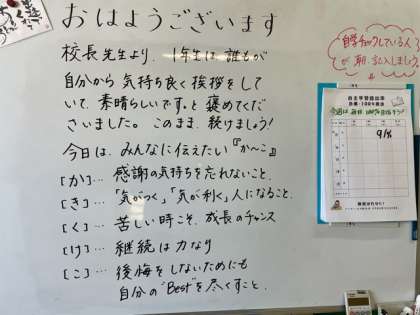 おはようございます
校長先生より、1年生は、誰もが
自分から気持ち良く挨拶をして
いて、素晴らしいです。と褒めてくだ
さいました。このまま、続けましょう!
今日は、みんなに伝えたい『か〜こ』
[か]… 感謝の気持ちを忘れないこと。
[き]… 「気がつく」「気が利く」人になること。
[く]… 苦しい時こそ、成長のチャンス
[け]… 継続は力なり
[こ]… 後悔をしないためにも
自分の"Best"を尽くすこと。
自学チェックしている人
が朝、記入しましょう。
自主学習提出率
目標・100%提出
9/16